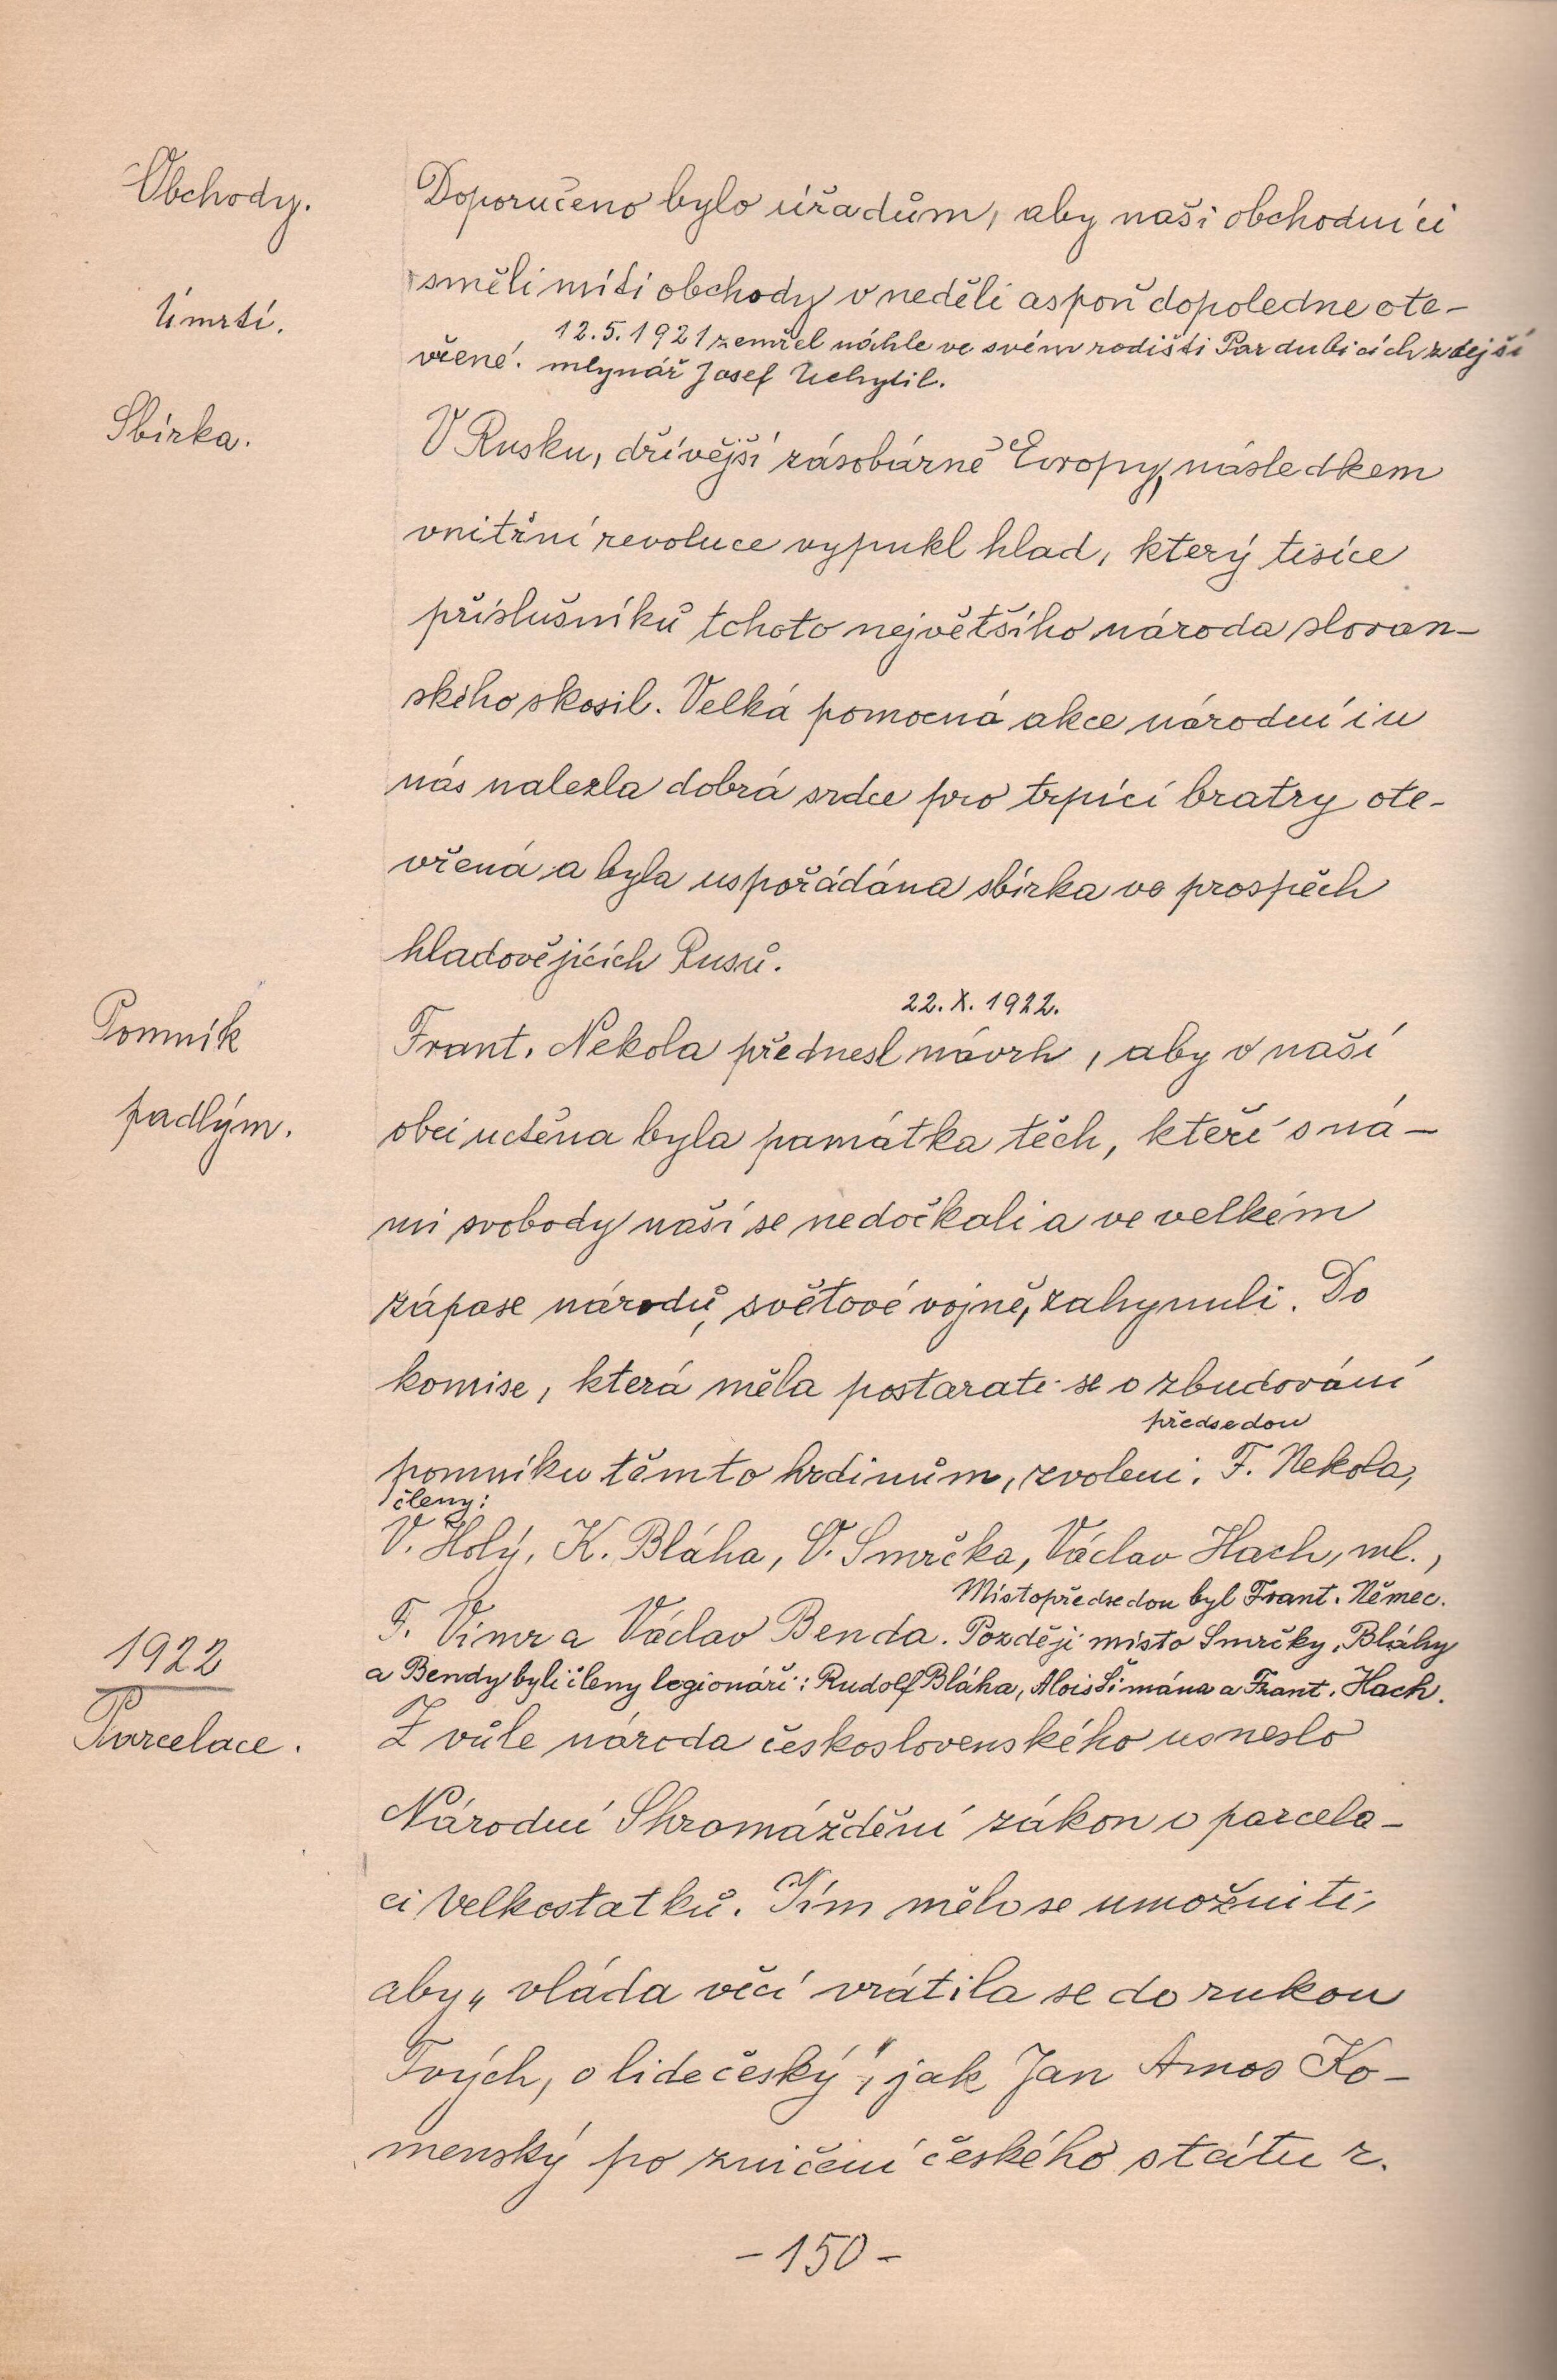 Obchody.
Doporučeno bylo úřadům, aby naši obchodníci
směli míti obchody v neděli aspoň dopoledne ote-
Úmrtí.
12.5.1921 zemřel náhle ve svém rodišti Pardubicích zdejší
vřené. mlynář Josef Uchytil.
Sbírka.
V Rusku, dřívější zásobárně Evropy, následkem
vnitřní revoluce vypukl hlad, který tisíce
příslušníků tohoto největšího národa slovan-
ského skosil. Velká pomocná akce národní i u
nás nalezla dobrá srdce pro trpící bratry ote-
vřená a byla uspořádána sbírka ve prospěch
hladovějících Rusů.
22. X. 1922.
Pomník
Frant. Nekola přednesl návrh, aby v naší
padlým.
obci uctěna byla památka těch, kteří s ná-
mi svobody naší se nedočkali a ve velkém
zápase národů, světové vojně, zahynuli. Do
komise, která měla postarati se o zbudování
předsedou
pomníku těmto hrdinům, zvoleni: F. Nekola,
členy:
V. Holý, K. Bláha, V. Smrčka, Václav Hach, ml.,
Místopředsedou byl Frant. Němec.
F. Vimr a Václav Benda. Později místo Smrčky, Bláhy
a Bendy byli členy legionáři: Rudolf Bláha, Alois Šimána a Frant. Hach.
1922
Parcelace.
Z vůle národa československého usneslo
Národní Shromáždění zákon o parcela-
ci velkostatků. Tím mělo se umožniti,
aby „vláda věcí vrátila se do rukou
Tvých, o lide český", jak Jan Amos Ko-
menský po zničení českého státu r.
-150-